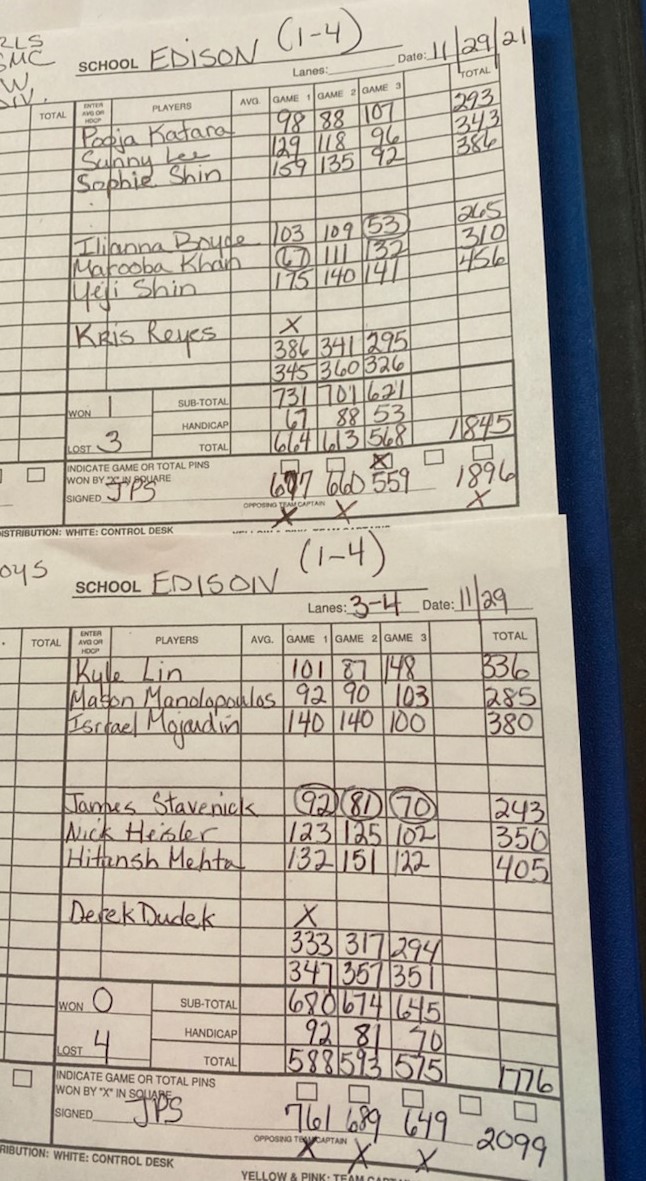 RLS
SMC
W
DIV.
SCHOOL EDISON (1-4)
Lanes: Date: 11/29/21
TOTAL ENTER AVG OR HDCP PLAYERS AVG. GAME 1 GAME 2 GAME 3 TOTAL
Pooja Katara 98 88 107 293
Sunny Lee 129 118 96 343
Sophie Shin 159 135 92 386
Ilianna Bryde 103 109 53 265
Marooba Khan 67 111 132 310
Yeji Shin 175 140 141 456
Kris Reyes X
386 341 295
345 360 326
SUB-TOTAL 731 701 621
WON 1
HANDICAP 67 88 53
LOST 3 TOTAL 664 613 568 1845
INDICATE GAME OR TOTAL PINS
WON BY "X" IN SQUARE X
677 660 559 1896
SIGNED JPS
OPPOSING TEAM CAPTAIN
X X X
DISTRIBUTION: WHITE: CONTROL DESK
OYS
SCHOOL EDISON (1-4)
Lanes: 3-4 Date: 11/29
TOTAL ENTER AVG OR HDCP PLAYERS AVG. GAME 1 GAME 2 GAME 3 TOTAL
Kyle Lin 101 87 148 336
Mason Manolopoulos 92 90 103 285
Israel Mojardin 140 140 100 380
James Stavenick 92 81 70 243
Nick Heisler 123 125 102 350
Hitansh Mehta 132 151 122 405
Derek Dudek X
333 317 294
347 357 351
WON 0 SUB-TOTAL 680 674 645
HANDICAP 92 81 70
LOST 4 TOTAL 588 593 575 1776
INDICATE GAME OR TOTAL PINS
WON BY "X" IN SQUARE
SIGNED JPS 761 689 649 2099
OPPOSING TEAM CAPTAIN
X X X
TRIBUTION: WHITE: CONTROL DESK
YELLOW & PINK: TEAM CAPT